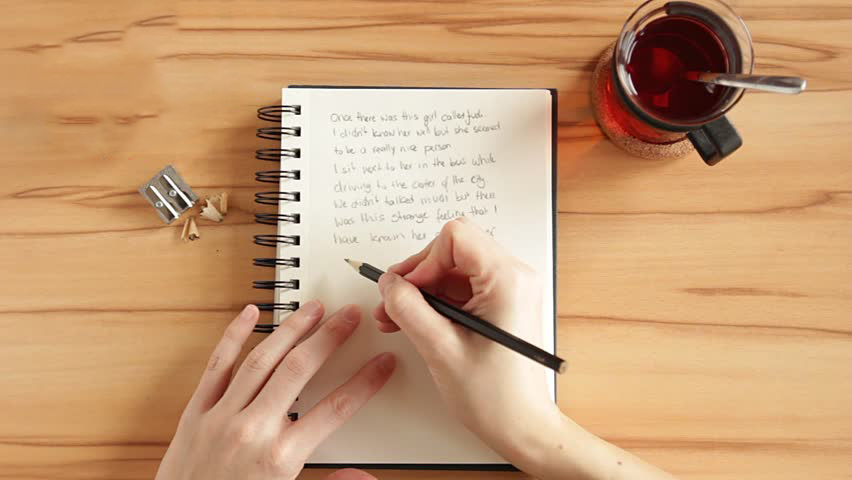 Once there was this girl called
I didn't know her well but she seemed
to be a really nice person
I sit next to her in the bus while
driving to the center of the city
We didn't talked much but there
was this strange feeling that I
have known her